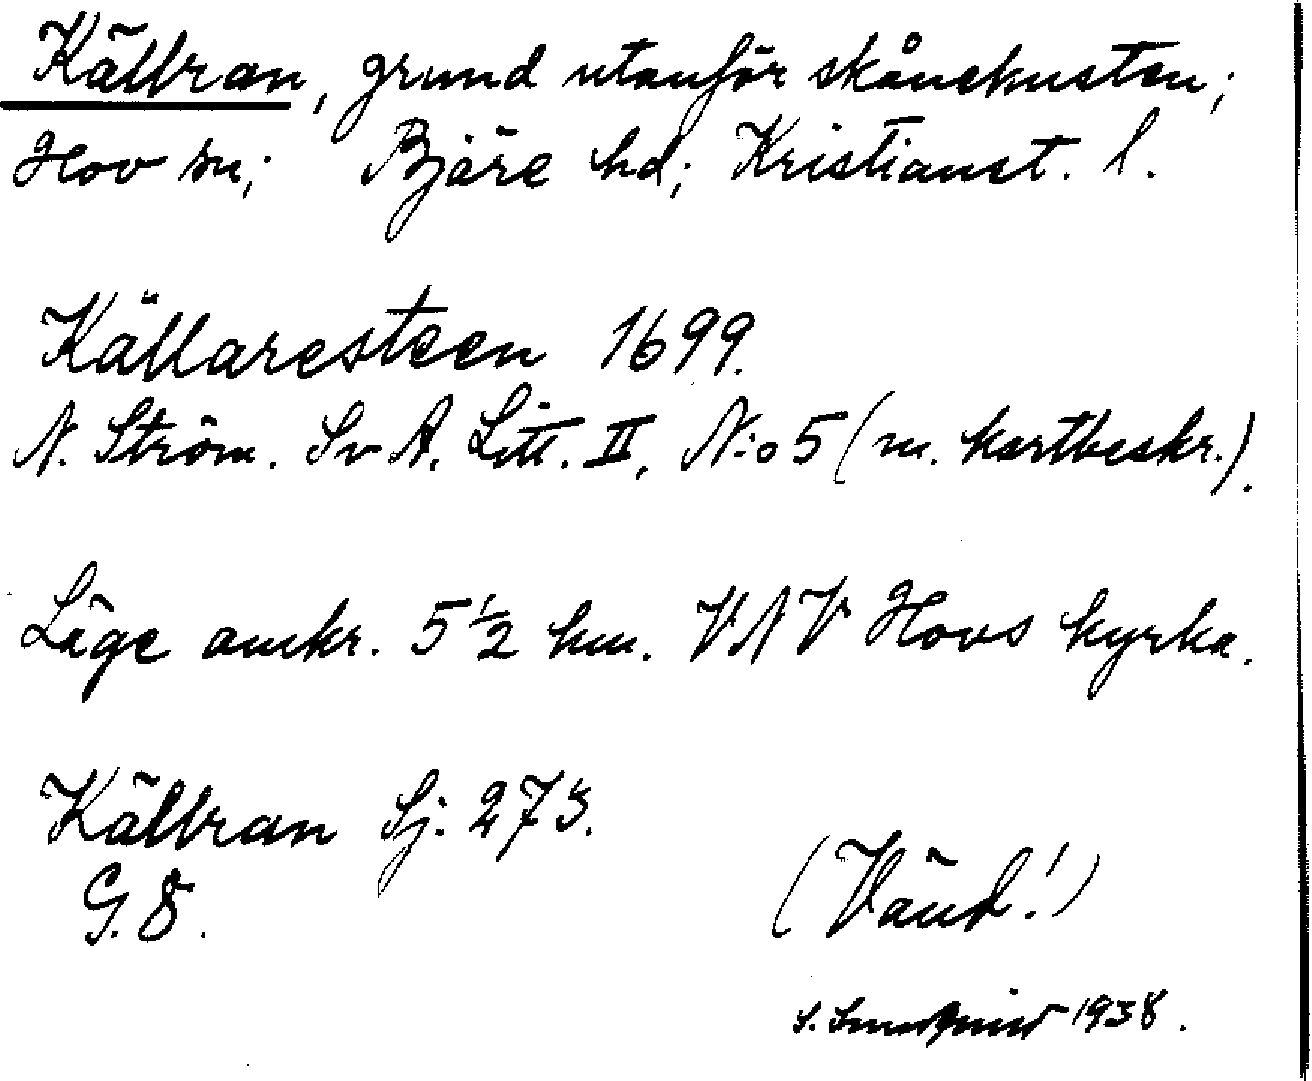 Källran, grund utanför skånekusten;
Hov sn; Bjäre hd; Kristianst. l.
Källaresteen 1699.
N. Ström. Sv A. Litt. II, N:o 5 (m. kartbeskr.).
Läge omkr. 5 1/2 km. VNV Hovs kyrka.
Källran Sj. 273.
G. 8.
(Vänd!)
S. 1938.